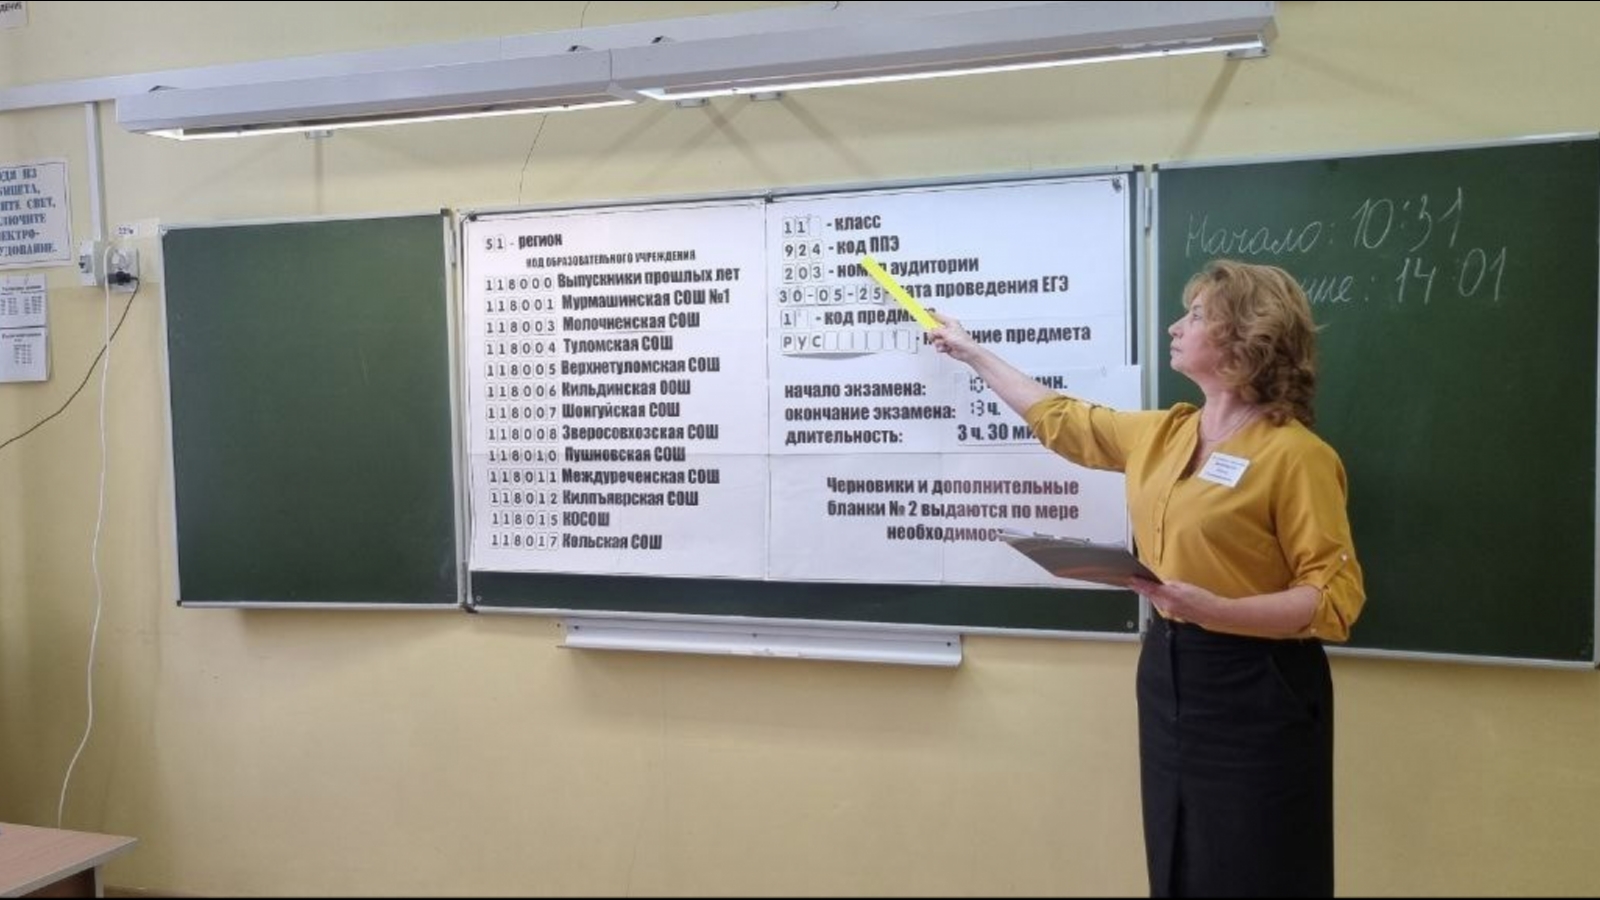 ДЕНИЕ
ОДЯ ИЗ
БИНЕТА,
ИТЕ СВЕТ,
КЛЮЧИТЕ
ЕКТРО-
УДОВАНИЕ.
51 - регион
КОД ОБРАЗОВАТЕЛЬНОГО УЧРЕЖДЕНИЯ
118000 Выпускники прошлых лет
118001 Мурмашинская СОШ №1
118003 Молочненская СОШ
118004 Туломская СОШ
118005 Верхнетуломская СОШ
118006 Кильдинская ООШ
118007 Шонгуйская СОШ
118008 Зверосовхозская СОШ
118010 Пушновская СОШ
118011 Междуреченская СОШ
118012 Килпъяврская СОШ
118015 КОСОШ
118017 Кольская СОШ
11 - класс
924 - код ППЭ
203 - номер аудитории
30-05-25 - дата проведения ЕГЭ
1 - код предмета
РУС - название предмета
начало экзамена: 10 мин.
окончание экзамена: 13 ч.
длительность: 3 ч. 30 ми
Черновики и дополнительные
бланки № 2 выдаются по мере
необходимос
Начало: 10:31
ние: 14 01